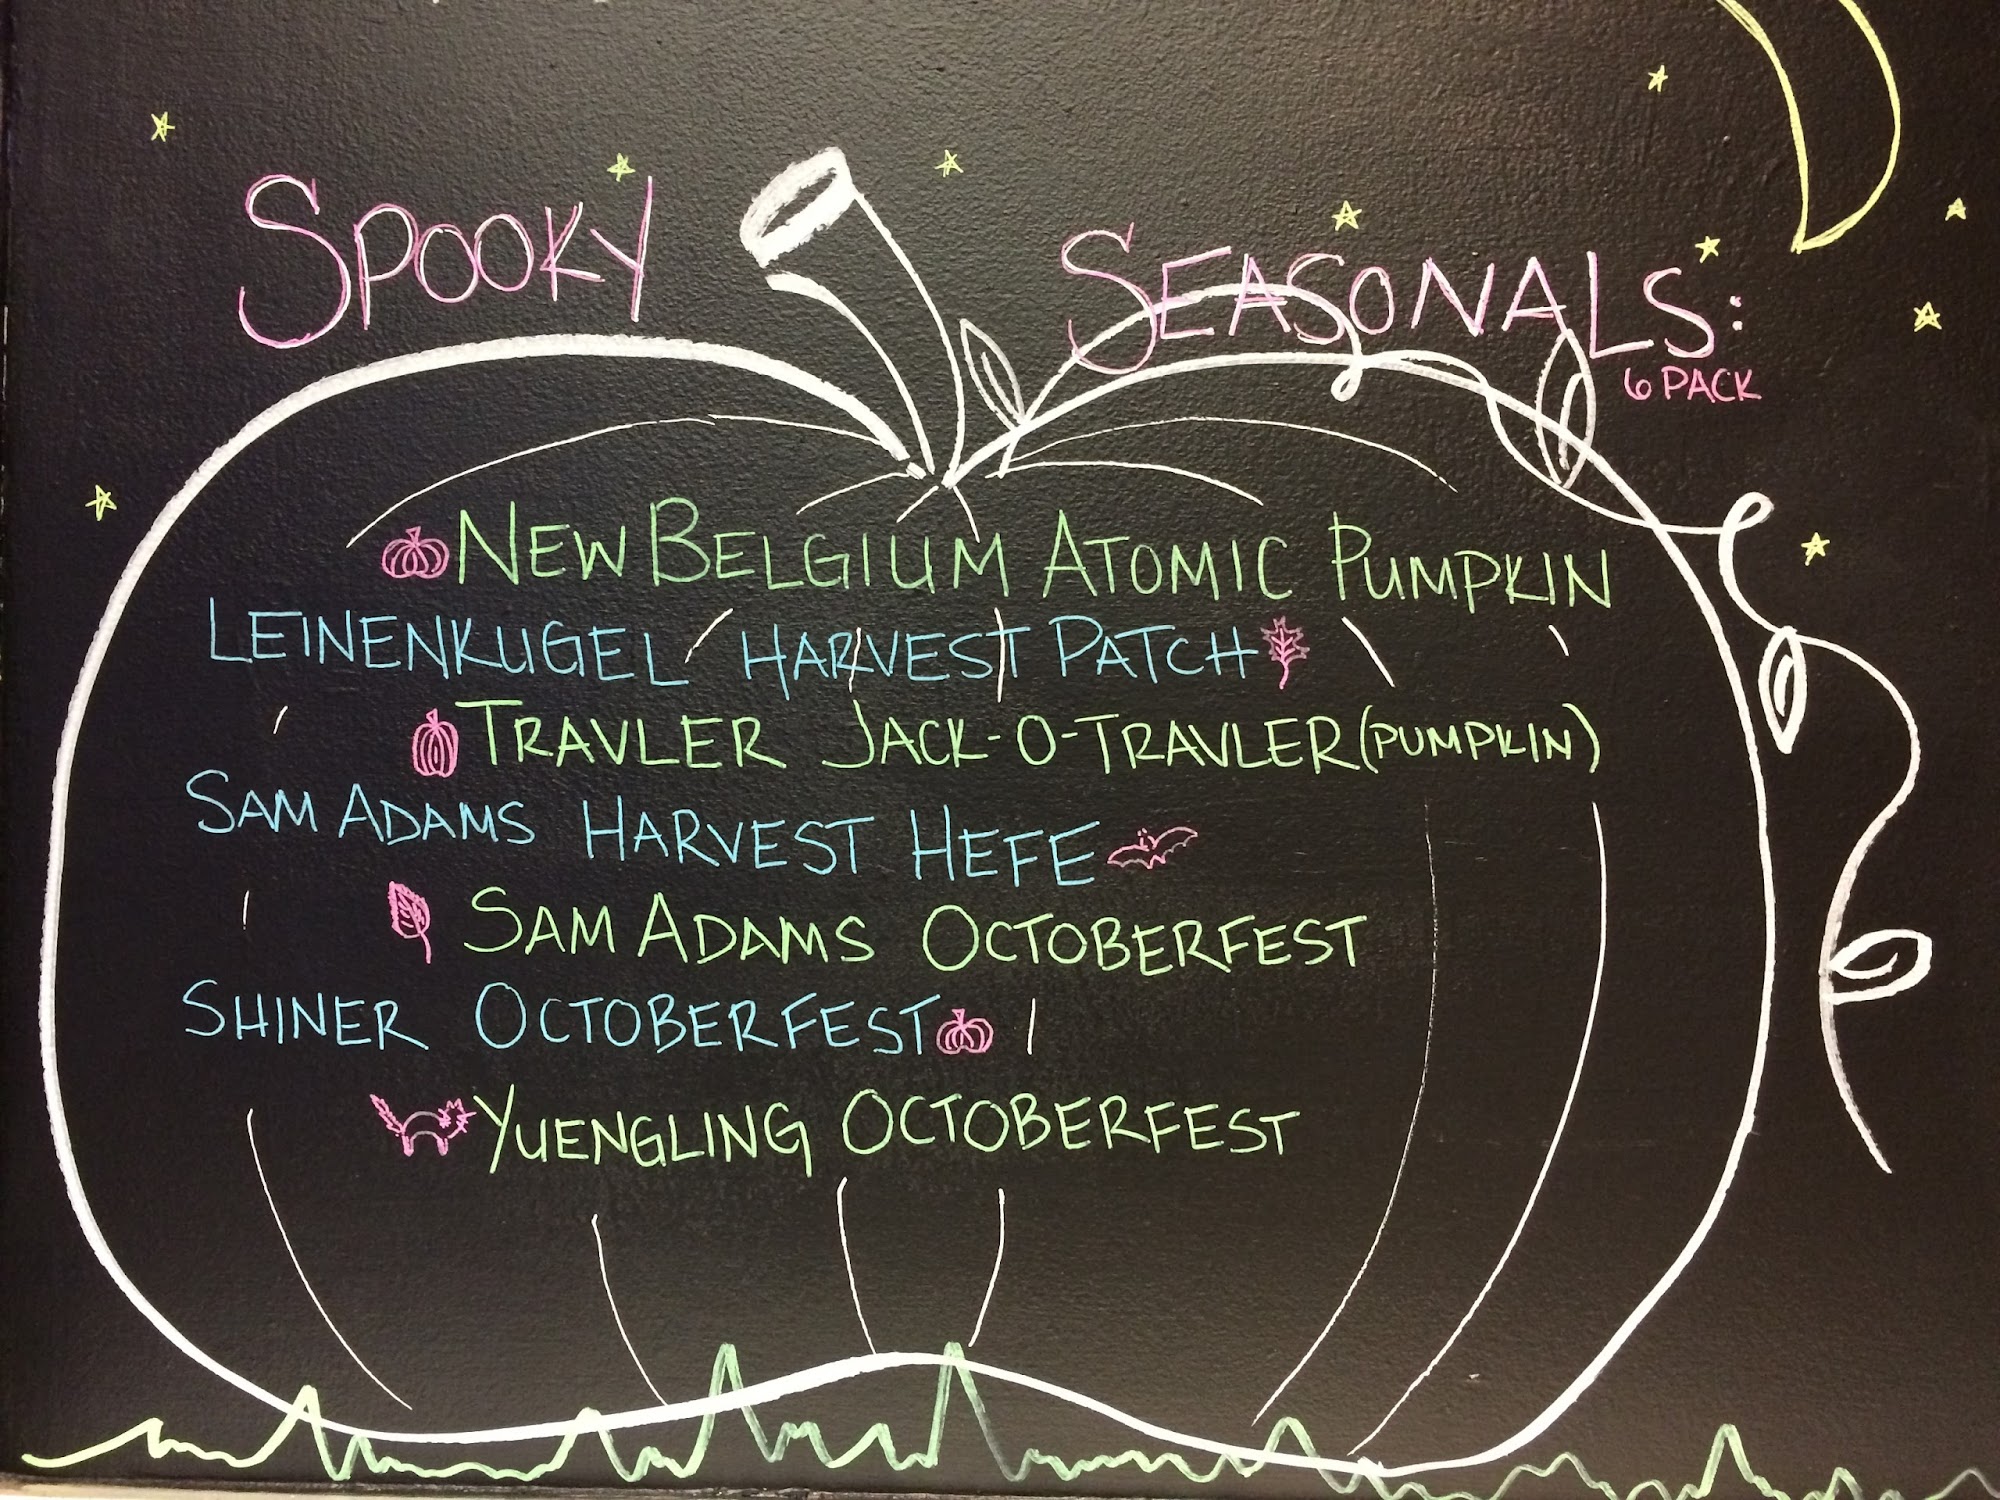 SPOOKY SEASONALS:
6 PACK
NEW BELGIUM ATOMIC PUMPKIN
LEINENKUGEL HARVEST PATCH
TRAVLER JACK-O-TRAVLER (PUMPKIN)
SAM ADAMS HARVEST HEFE
SAM ADAMS OCTOBERFEST
SHINER OCTOBERFEST
YUENGLING OCTOBERFEST